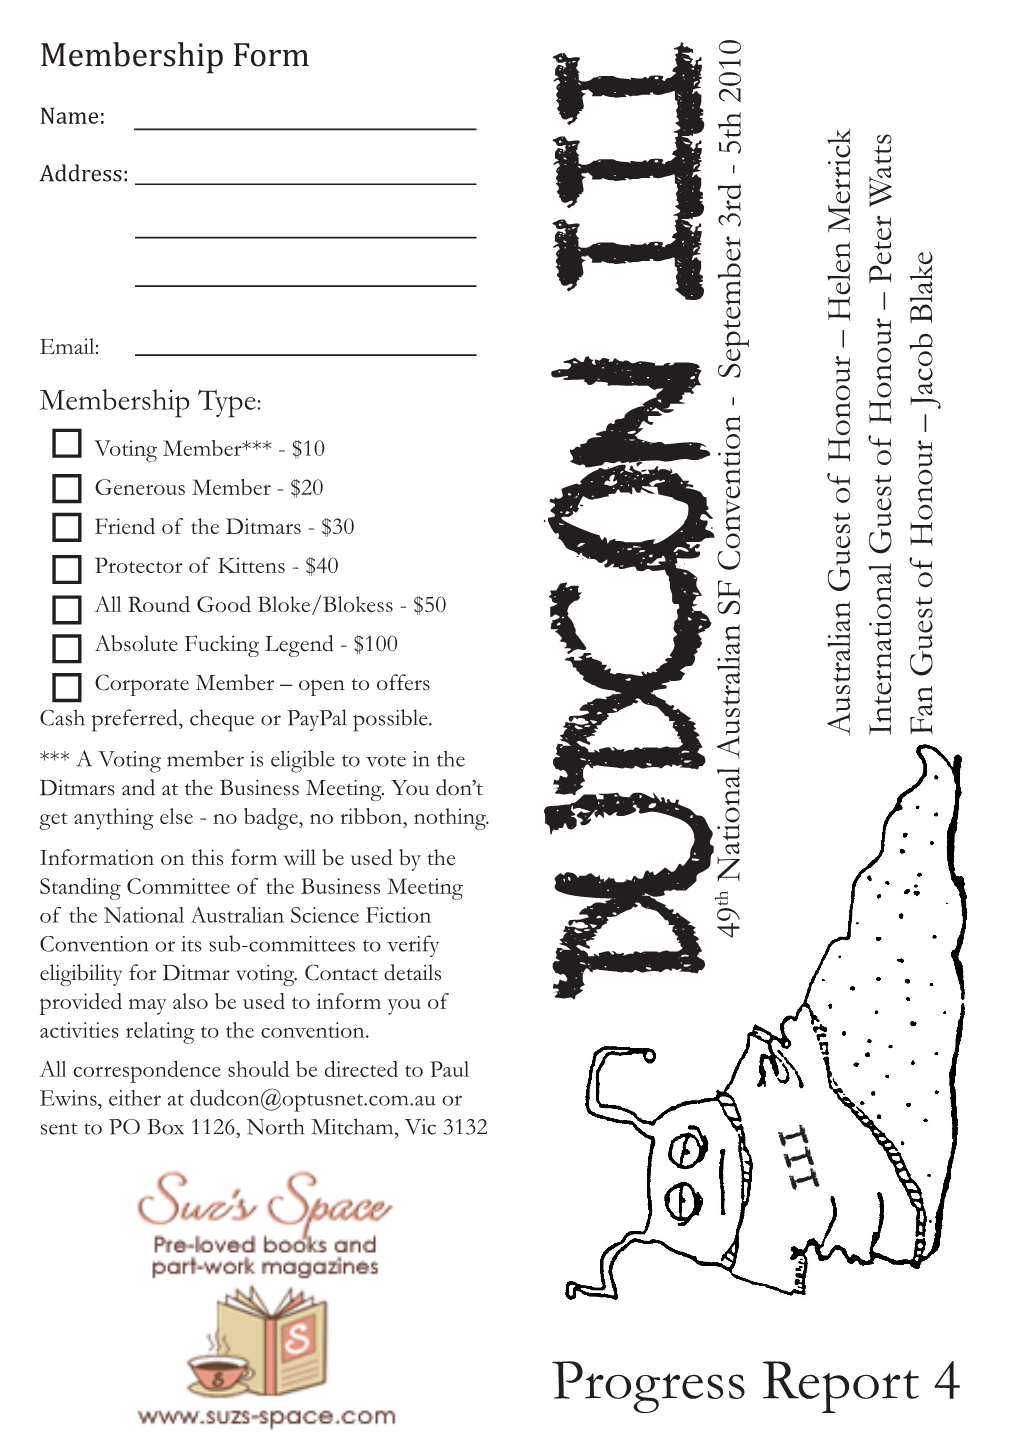 Membership Form
Name:
Address:
Email:
Membership Type:
Voting Member*** - $10
Generous Member - $20
Friend of the Ditmars - $30
Protector of Kittens - $40
All Round Good Bloke/Blokess - $50
Absolute Fucking Legend - $100
Corporate Member – open to offers
Cash preferred, cheque or PayPal possible.
*** A Voting member is eligible to vote in the
Ditmars and at the Business Meeting. You don’t
get anything else - no badge, no ribbon, nothing.
Information on this form will be used by the
Standing Committee of the Business Meeting
of the National Australian Science Fiction
Convention or its sub-committees to verify
eligibility for Ditmar voting. Contact details
provided may also be used to inform you of
activities relating to the convention.
All correspondence should be directed to Paul
Ewins, either at dudcon@optusnet.com.au or
sent to PO Box 1126, North Mitcham, Vic 3132
Suz's Space
Pre-loved books and
part-work magazines
S
S
www.suzs-space.com
DUDCON III
49th National Australian SF Convention - September 3rd - 5th 2010
Australian Guest of Honour – Helen Merrick
International Guest of Honour – Peter Watts
Fan Guest of Honour – Jacob Blake
III
Progress Report 4